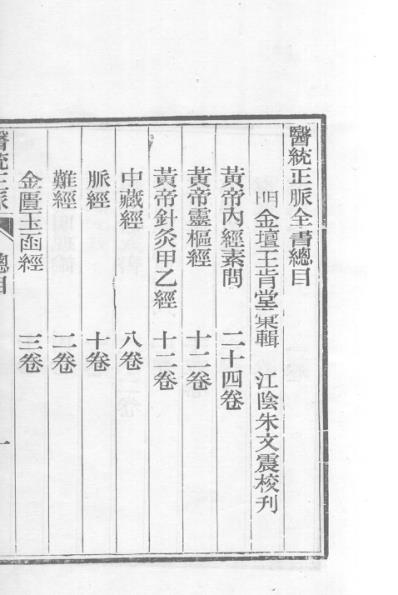 醫統正脉全書總目
明金壇王肯堂彙輯　江陰朱文震校刊
黃帝內經素問　二十四卷
黃帝靈樞經　十二卷
黃帝針灸甲乙經　十二卷
中藏經　八卷
脈經　十卷
難經　二卷
金匱玉函經　三卷
醫統正脉　總目　一